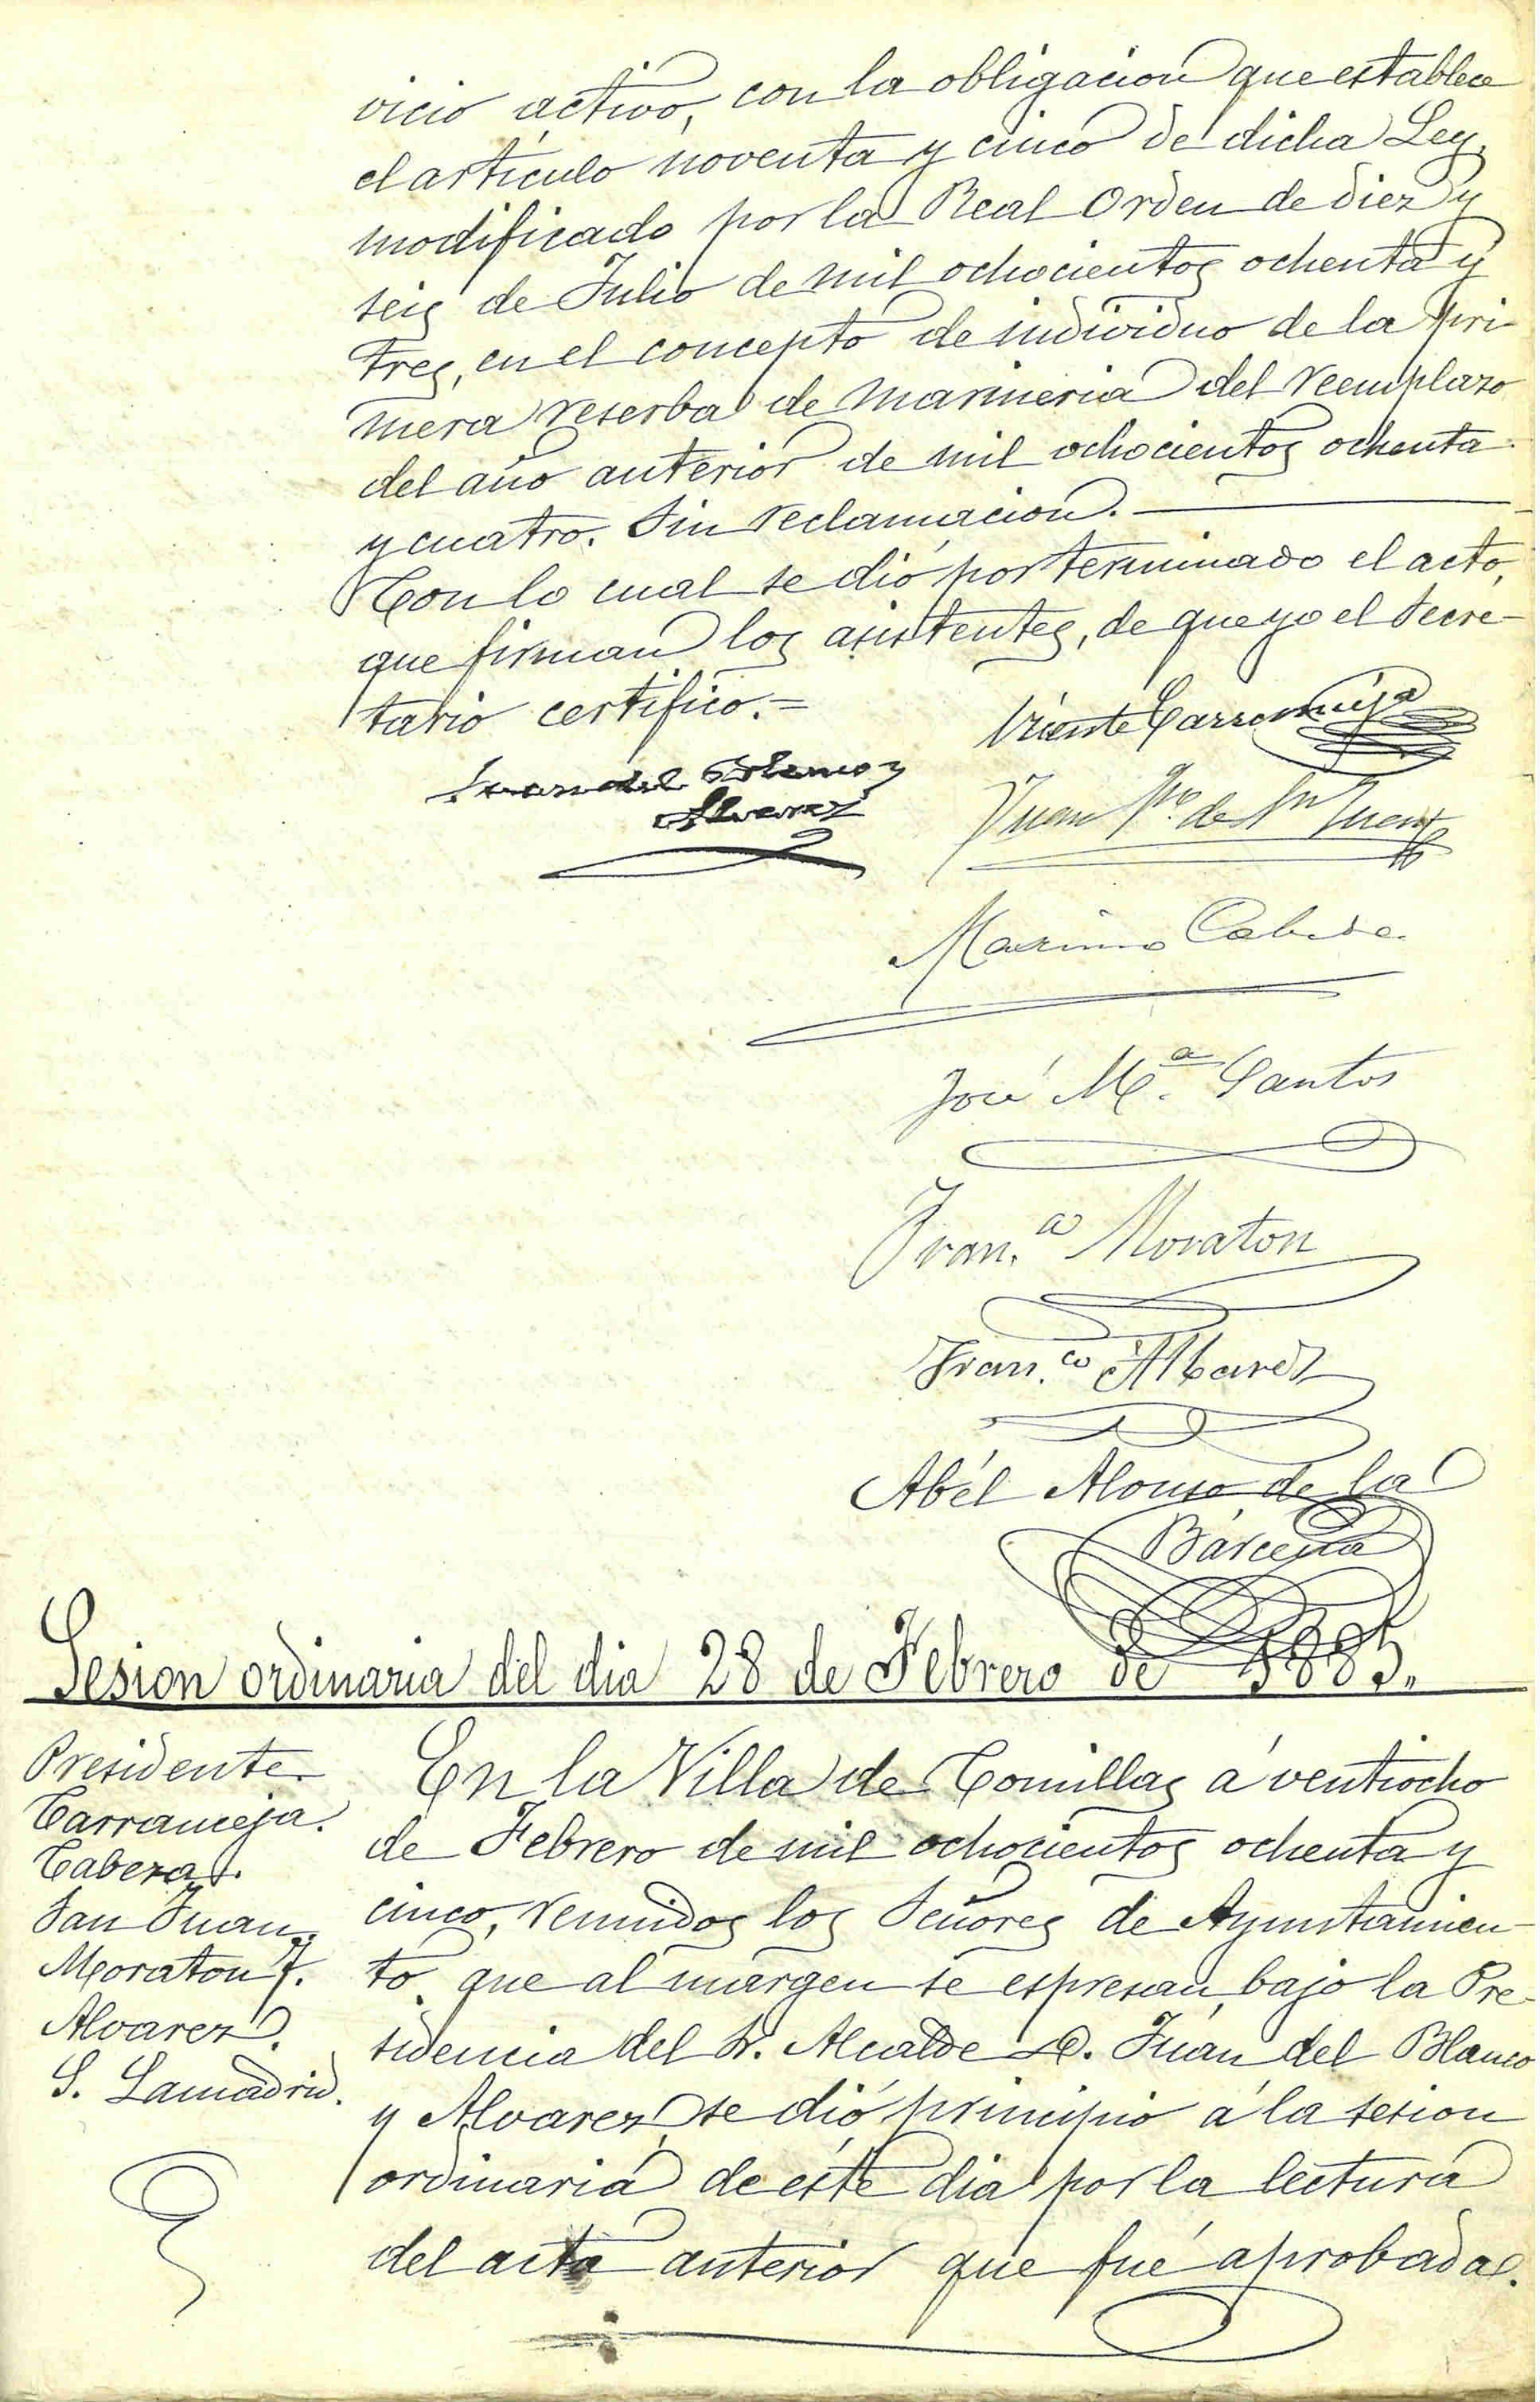 vicio activo, con la obligacion que establece
el artículo noventa y cinco de dicha Ley,
modificado por la Real Orden de diez y
seis de Julio de mil ochocientos ochenta y
tres, en el concepto de individuo de la pri-
mera reserba de marineria del reemplazo
del año anterior de mil ochocientos ochenta
y cuatro. Sin reclamacion.
Con lo cual se dió por terminado el acto,
que firman los asistentes, de que yo el Secre-
tario certifico.=
Vicente Carranceja
Juan del Blanco y
Alvarez
Juan de Sn Juan
Maximo Cabeza
José M.ª Santos
Fran.co Moraton
Fran.co Albarez
Abél Alonso de la
Bárcena
Sesion ordinaria del dia 28 de Febrero de 1885.
Presidente.
Carranceja.
Cabeza.
San Juan.
Moraton F.
Alvarez.
S. Lamadrid.
En la Villa de Comillas á ventiocho
de Febrero de mil ochocientos ochenta y
cinco, reunidos los Señores de Ayuntamien-
to que al margen se espresan, bajo la Pre-
sidencia del Sr. Alcalde D. Juan del Blanco
y Alvarez, se dió principio á la sesion
ordinaria de éste dia por la lectura
del acta anterior que fué aprobada.